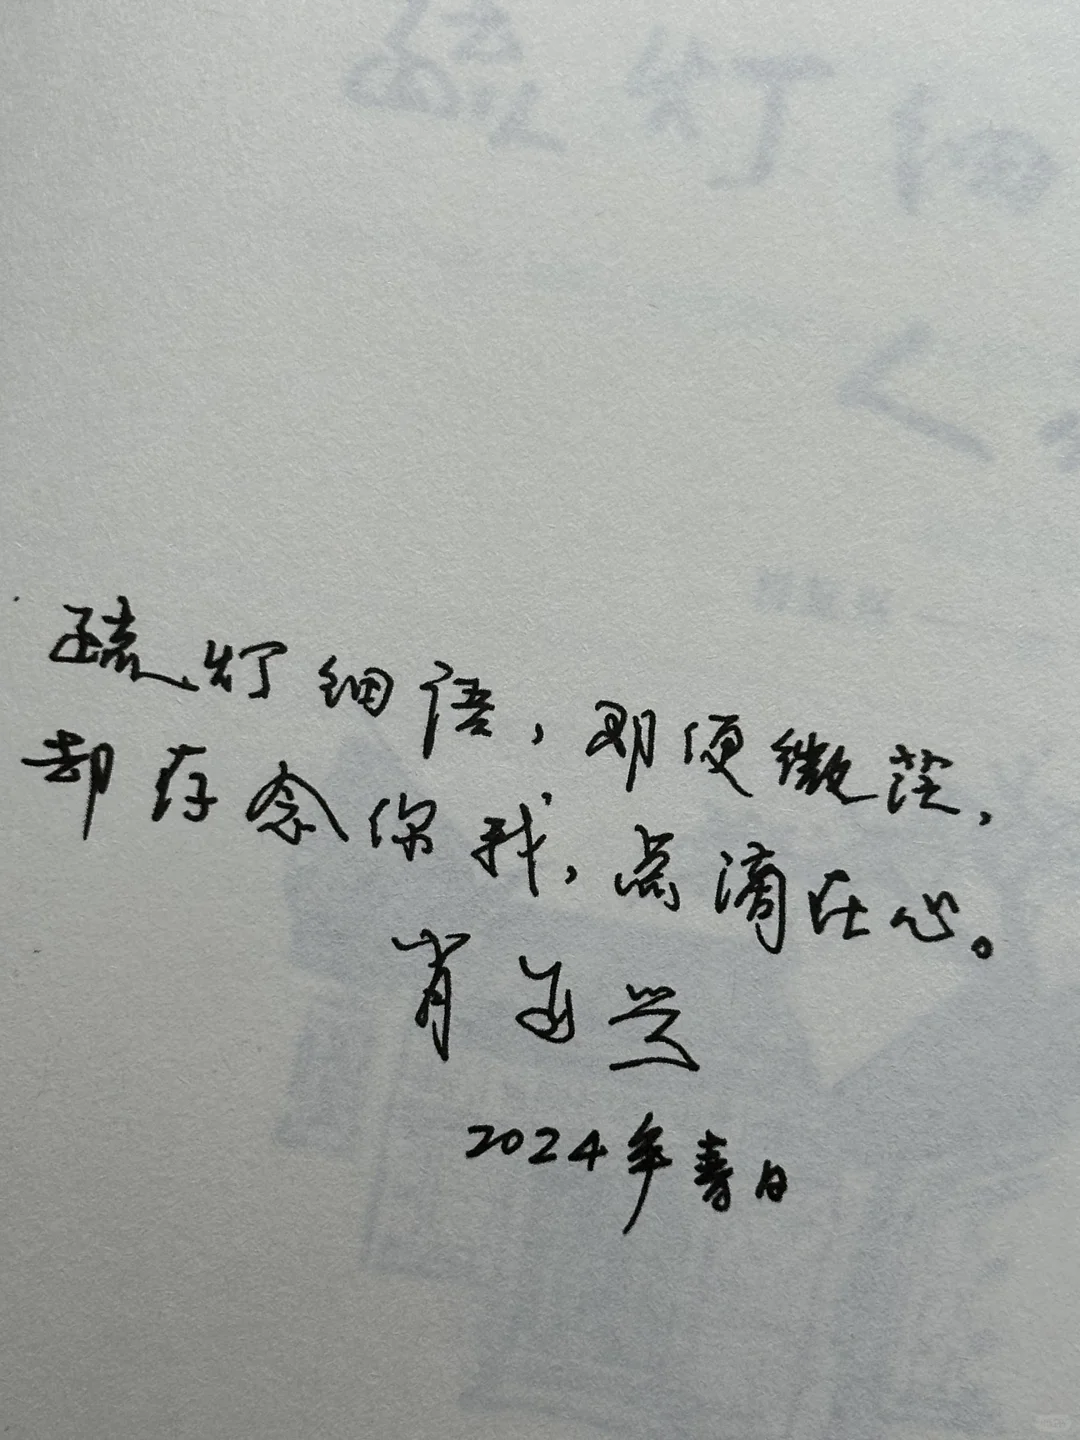 疏灯细语，即便微茫，
却存念你我，点滴在心。
肖海兰
2024年春日